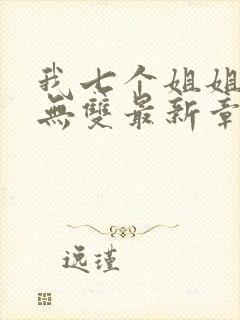 我七个姐姐
無雙最新章
逸瑾